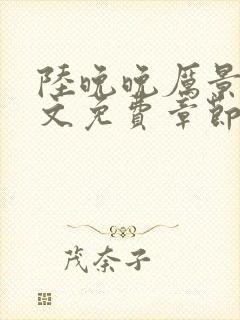 陸晚晚厲景
文免費章節
茂奈子